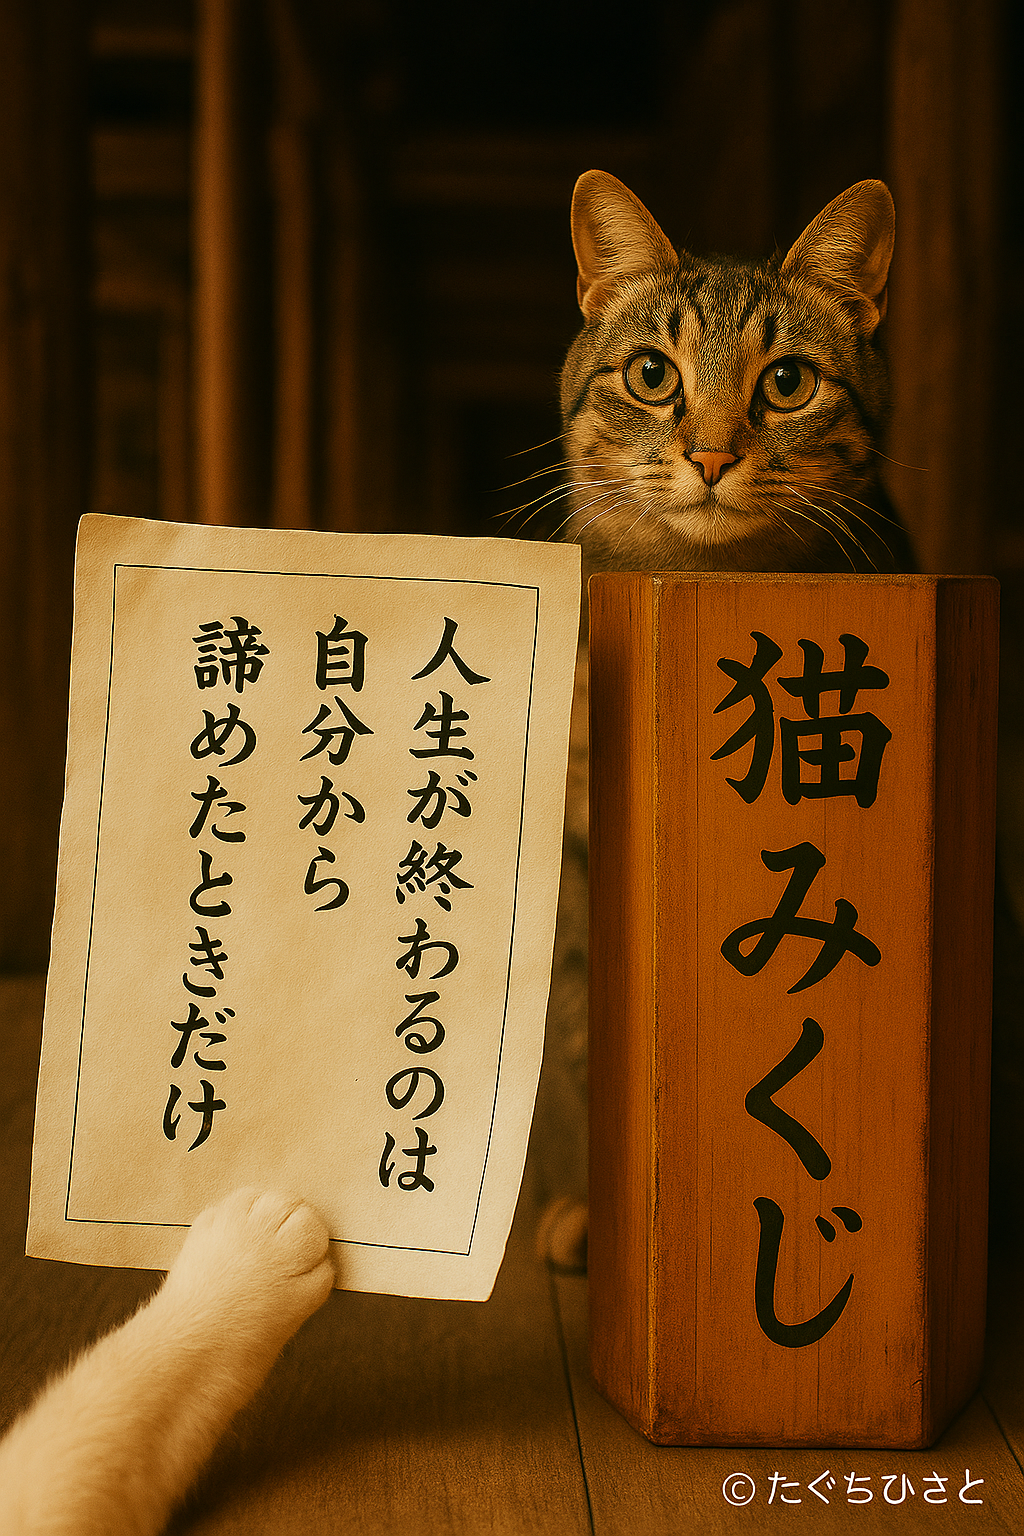 人生が終わるのは
自分から
諦めたときだけ
猫みくじ
© たぐちひさと